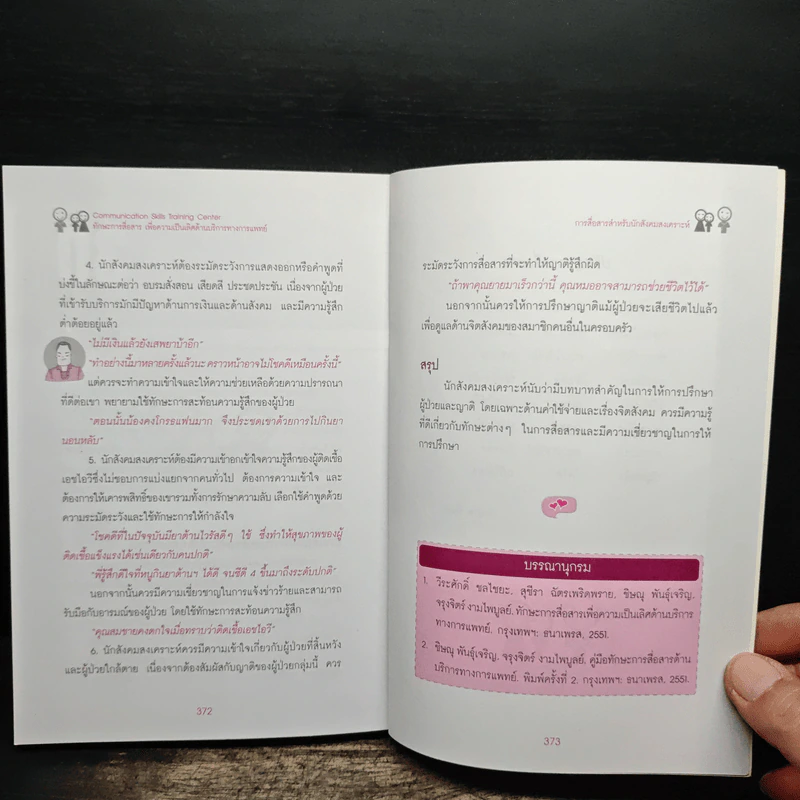 Communication Skills Training Center
ทักษะการสื่อสาร เพื่อความเป็นเลิศด้านบริการทางการแพทย์
4. นักสังคมสงเคราะห์ต้องระมัดระวังการแสดงออกหรือคำพูดที่
บ่งชี้ในลักษณะต่อว่า อบรมสั่งสอน เสียดสี ประชดประชัน เนื่องจากผู้ป่วย
ที่เข้ารับบริการมักมีปัญหาด้านการเงินและด้านสังคม และมีความรู้สึก
ต่ำต้อยอยู่แล้ว
"ไม่มีเงินแล้วยังเสพยาบ้าอีก"
"ทำอย่างนี้มาหลายครั้งแล้วนะ คราวหน้าอาจไม่โชคดีเหมือนครั้งนี้"
แต่ควรจะทำความเข้าใจและให้ความช่วยเหลือด้วยความปรารถนา
ที่ดีต่อเขา พยายามใช้ทักษะการสะท้อนความรู้สึกของผู้ป่วย
"ตอนนั้นน้องคงโกรธแฟนมาก จึงประชดเขาด้วยการไปกินยา
นอนหลับ"
5. นักสังคมสงเคราะห์ต้องมีความเข้าอกเข้าใจความรู้สึกของผู้ติดเชื้อ
เอชไอวีซึ่งไม่ชอบการแบ่งแยกจากคนทั่วไป ต้องการความเข้าใจ และ
ต้องการให้เคารพสิทธิ์ของเขารวมทั้งการรักษาความลับ เลือกใช้คำพูดด้วย
ความระมัดระวังและใช้ทักษะการให้กำลังใจ
"โชคดีที่ในปัจจุบันมียาต้านไวรัสดีๆ ใช้ ซึ่งทำให้สุขภาพของผู้
ติดเชื้อแข็งแรงได้เช่นเดียวกับคนปกติ"
"พี่รู้สึกดีใจที่หนูกินยาต้านฯ ได้ดี จนซีดี 4 ขึ้นมาถึงระดับปกติ"
นอกจากนั้นควรมีความเชี่ยวชาญในการแจ้งข่าวร้ายและสามารถ
รับมือกับอารมณ์ของผู้ป่วย โดยใช้ทักษะการสะท้อนความรู้สึก
"คุณสมชายคงตกใจเมื่อทราบว่าติดเชื้อเอชไอวี"
6. นักสังคมสงเคราะห์ควรมีความเข้าใจเกี่ยวกับผู้ป่วยที่สิ้นหวัง
และผู้ป่วยใกล้ตาย เนื่องจากต้องสัมผัสกับญาติของผู้ป่วยกลุ่มนี้ ควร
372
การสื่อสารสำหรับนักสังคมสงเคราะห์
ระมัดระวังการสื่อสารที่จะทำให้ญาติรู้สึกผิด
"ถ้าพาคุณยายมาเร็วกว่านี้ คุณหมออาจสามารถช่วยชีวิตไว้ได้"
นอกจากนั้นควรให้การปรึกษาญาติแม้ผู้ป่วยจะเสียชีวิตไปแล้ว
เพื่อดูแลด้านจิตสังคมของสมาชิกคนอื่นในครอบครัว
สรุป
นักสังคมสงเคราะห์นับว่ามีบทบาทสำคัญในการให้การปรึกษา
ผู้ป่วยและญาติ โดยเฉพาะด้านค่าใช้จ่ายและเรื่องจิตสังคม ควรมีความรู้
ที่ดีเกี่ยวกับทักษะต่างๆ ในการสื่อสารและมีความเชี่ยวชาญในการให้
การปรึกษา
บรรณานุกรม
1. วีระศักดิ์ ชลไชยะ, สุชีรา ฉัตรเพริดพราย, ชิษณุ พันธุ์เจริญ,
จรุงจิตร์ งามไพบูลย์, ทักษะการสื่อสารเพื่อความเป็นเลิศด้านบริการ
ทางการแพทย์. กรุงเทพฯ: ธนาเพรส, 2551.
2. ชิษณุ พันธุ์เจริญ, จรุงจิตร์ งามไพบูลย์, คู่มือทักษะการสื่อสารด้าน
บริการทางการแพทย์. พิมพ์ครั้งที่ 2. กรุงเทพฯ: ธนาเพรส, 2551.
373